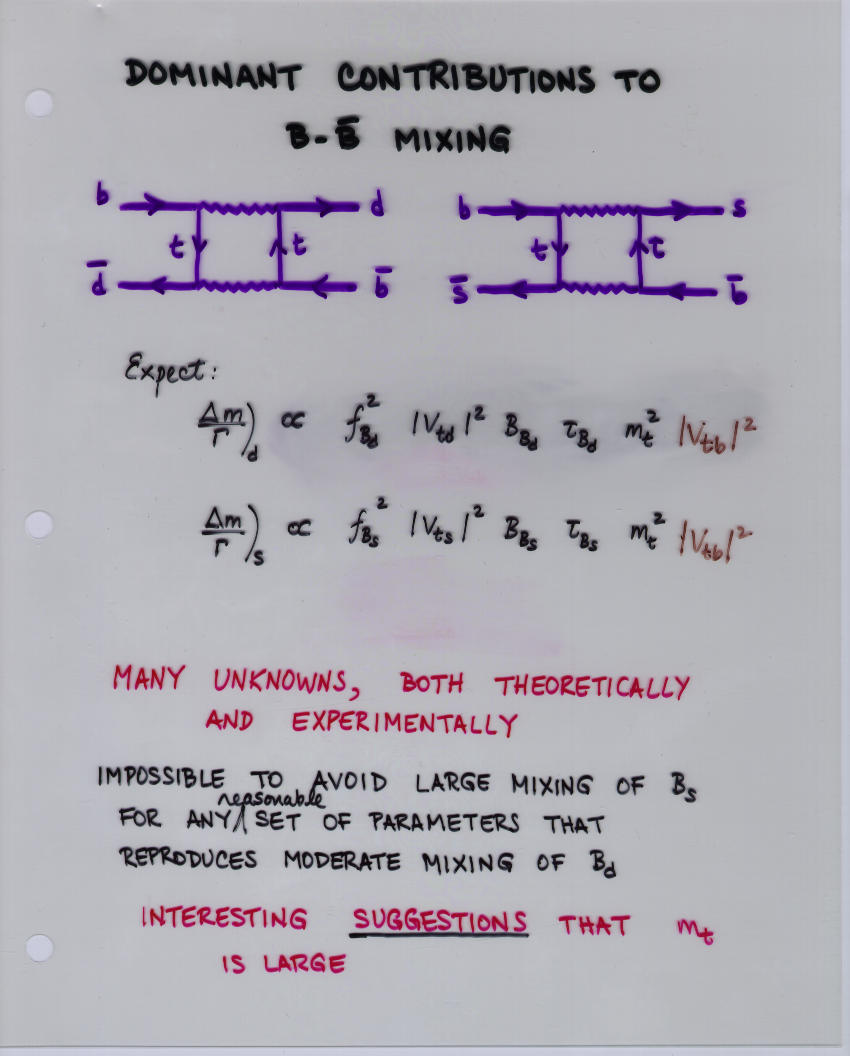 DOMINANT CONTRIBUTIONS TO
B-B̄ MIXING
b d b s
t t t t
d̄ b̄ s̄ b̄
Expect:
Δm/Γ)_d ∝ f_{B_d}^2 |V_{td}|^2 B_{B_d} τ_{B_d} m_t^2 |V_{tb}|^2
Δm/Γ)_s ∝ f_{B_s}^2 |V_{ts}|^2 B_{B_s} τ_{B_s} m_t^2 |V_{tb}|^2
MANY UNKNOWNS, BOTH THEORETICALLY
AND EXPERIMENTALLY
IMPOSSIBLE TO AVOID LARGE MIXING OF B_s
FOR ANY reasonable SET OF PARAMETERS THAT
REPRODUCES MODERATE MIXING OF B_d
INTERESTING SUGGESTIONS THAT m_t
IS LARGE